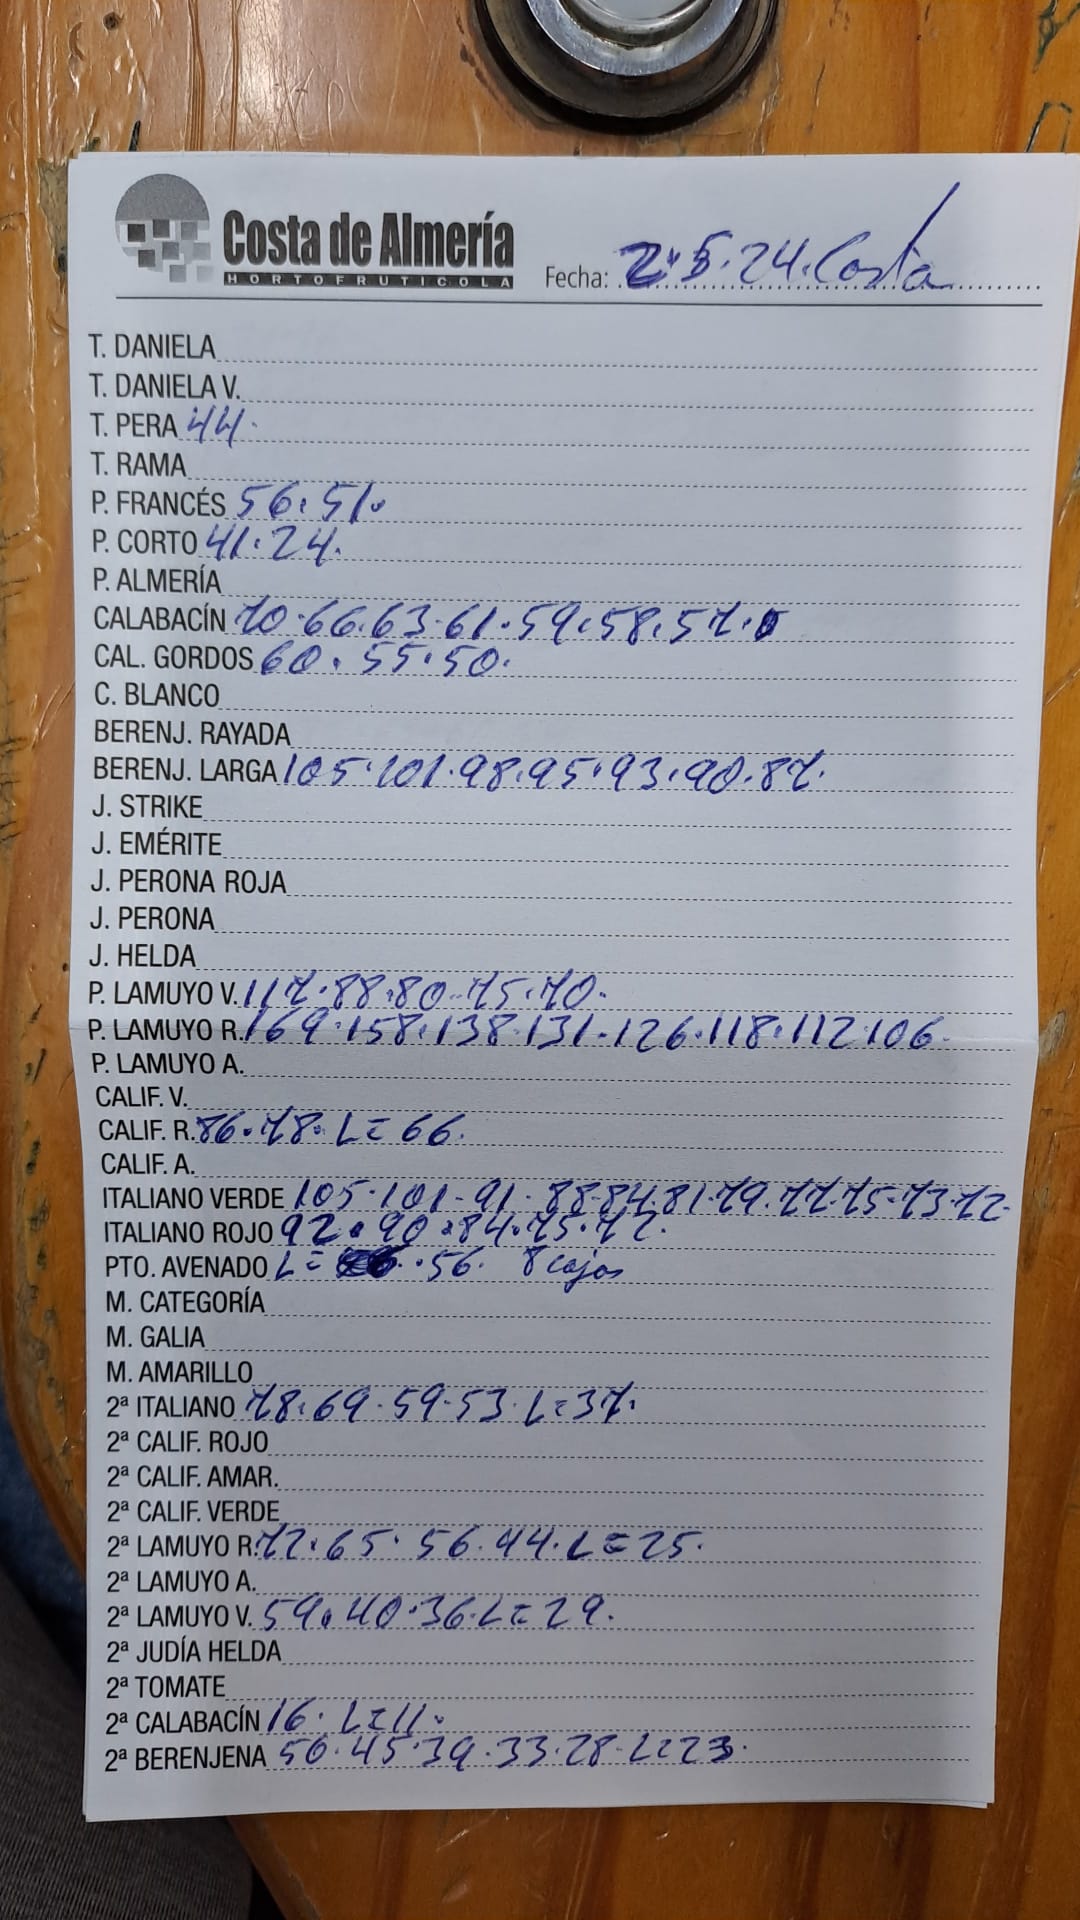 Costa de Almería
HORTOFRUTICOLA
Fecha: 2.5.24.Costa
T. DANIELA
T. DANIELA V.
T. PERA 44.
T. RAMA
P. FRANCÉS 56.51.
P. CORTO 41.24.
P. ALMERÍA
CALABACÍN 70.66.63.61.59.58.57.
CAL. GORDOS 60.55.50.
C. BLANCO
BERENJ. RAYADA
BERENJ. LARGA 105.101.98.95.93.90.87.
J. STRIKE
J. EMÉRITE
J. PERONA ROJA
J. PERONA
J. HELDA
P. LAMUYO V. 117.88.80.75.70.
P. LAMUYO R. 169.158.138.131.126.118.112.106.
P. LAMUYO A.
CALIF. V.
CALIF. R. 86.78. L=66.
CALIF. A.
ITALIANO VERDE 105.101.91.88.84.81.79.77.75.73.72.
ITALIANO ROJO 92.90.84.75.72.
PTO. AVENADO L= .56. 8 cajas
M. CATEGORÍA
M. GALIA
M. AMARILLO
2ª ITALIANO 78.69.59.53.L=37.
2ª CALIF. ROJO
2ª CALIF. AMAR.
2ª CALIF. VERDE
2ª LAMUYO R. 72.65.56.44.L=25.
2ª LAMUYO A.
2ª LAMUYO V. 59.40.36.L=29.
2ª JUDÍA HELDA
2ª TOMATE
2ª CALABACÍN 16. L=11.
2ª BERENJENA 50.45.39.33.28.L=23.